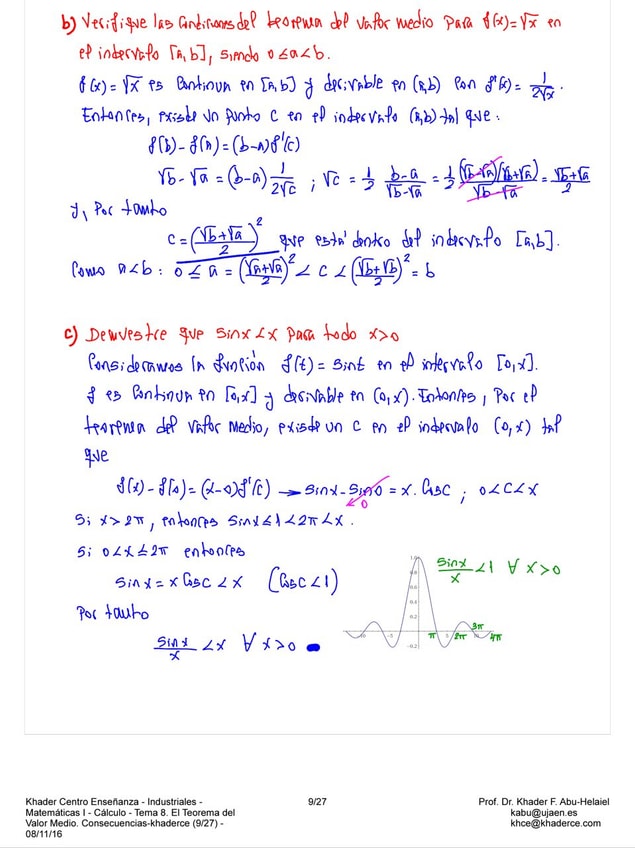 b) Verifique las condiciones del teorema del valor medio para f(x)=√x en
el intervalo [a,b], siendo 0≤a<b.
f(x)=√x es continua en [a,b] y derivable en (a,b) con f'(x)= 1/(2√x).
Entonces, existe un punto c en el intervalo (a,b) tal que:
f(b)-f(a)=(b-a)f'(c)
√b-√a=(b-a) 1/(2√c) ; √c = 1/2 (b-a)/(√b-√a) = 1/2 (√b-√a)(√b+√a)/(√b-√a) = (√b+√a)/2
y, por tanto
c=((√b+√a)/2)² que está dentro del intervalo [a,b].
Como a<b: 0≤a=((√a+√a)/2)²<c<((√b+√b)/2)²=b
c) Demuestre que sinx<x para todo x>0
Consideramos la función f(t)=sint en el intervalo [0,x].
f es continua en [0,x] y derivable en (0,x). Entonces, por el
teorema del valor medio, existe un c en el intervalo (0,x) tal
que
f(x)-f(0)=(x-0)f'(c) → sinx-sin0=x.cosc ; 0<c<x
0
Si x>2π, entonces sinx≤1<2π<x.
Si 0<x≤2π entonces
sinx=x cosc<x (cosc<1)
Por tanto
sinx/x <x ∀ x>0
sinx/x <1 ∀ x>0
1.0
0.8
0.6
0.4
0.2
-0.2
-10 -5 5 10
π 2π 3π 4π
Khader Centro Enseñanza - Industriales -
Matemáticas I - Cálculo - Tema 8. El Teorema del
Valor Medio. Consecuencias-khaderce (9/27) -
08/11/16
9/27
Prof. Dr. Khader F. Abu-Helaiel
kabu@ujaen.es
khce@khaderce.com